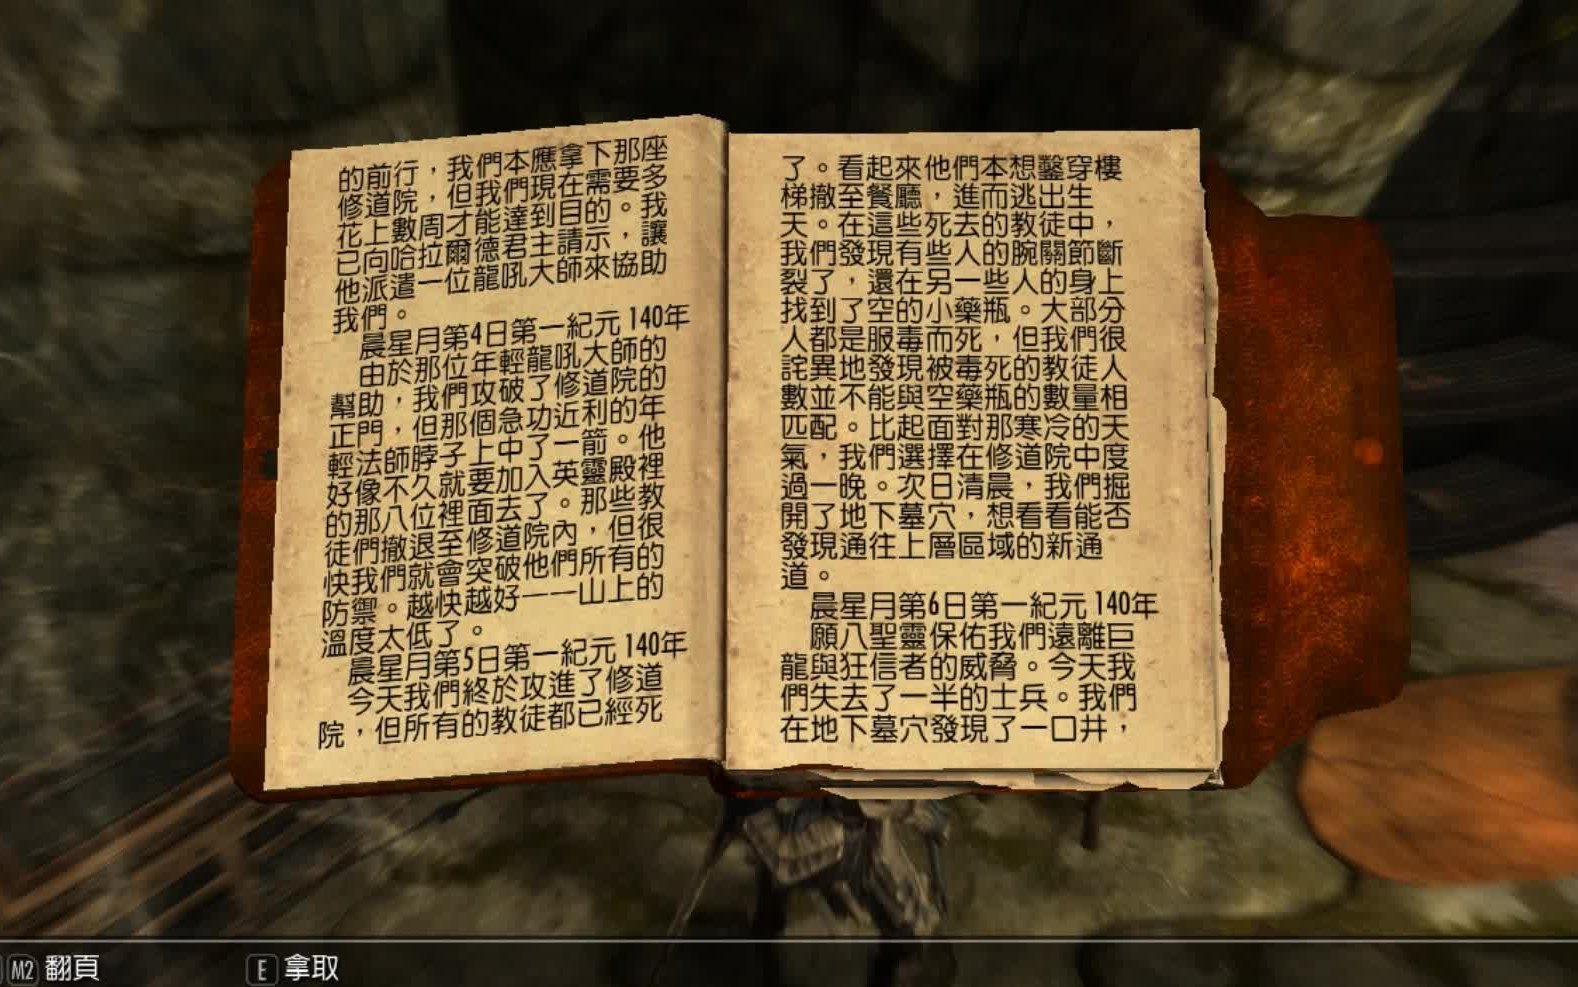 的前行，我們本應拿下那座
修道院，但我們現在需要多
花上數周才能達到目的。我
已向哈拉爾德君主請示，讓
他派遣一位龍吼大師來協助
我們。
晨星月第4日第一紀元140年
由於那位年輕龍吼大師的
幫助，我們攻破了修道院的
正門，但那個急功近利的年
輕法師脖子上中了一箭。他
好像不久就要加入英靈殿裡
的那八位裡面去了。那些教
徒們撤退至修道院內，但很
快我們就會突破他們所有的
防禦。越快越好——山上的
溫度太低了。
晨星月第5日第一紀元140年
今天我們終於攻進了修道
院，但所有的教徒都已經死
了。看起來他們本想鑿穿樓
梯撤至餐廳，進而逃出生
天。在這些死去的教徒中，
我們發現有些人的腕關節斷
裂了，還在另一些人的身上
找到了空的小藥瓶。大部分
人都是服毒而死，但我們很
詫異地發現被毒死的教徒人
數並不能與空藥瓶的數量相
匹配。比起面對那寒冷的天
氣，我們選擇在修道院中度
過一晚。次日清晨，我們掘
開了地下墓穴，想看看能否
發現通往上層區域的新通
道。
晨星月第6日第一紀元140年
願八聖靈保佑我們遠離巨
龍與狂信者的威脅。今天我
們失去了一半的士兵。我們
在地下墓穴發現了一口井，
M2 翻頁
E 拿取